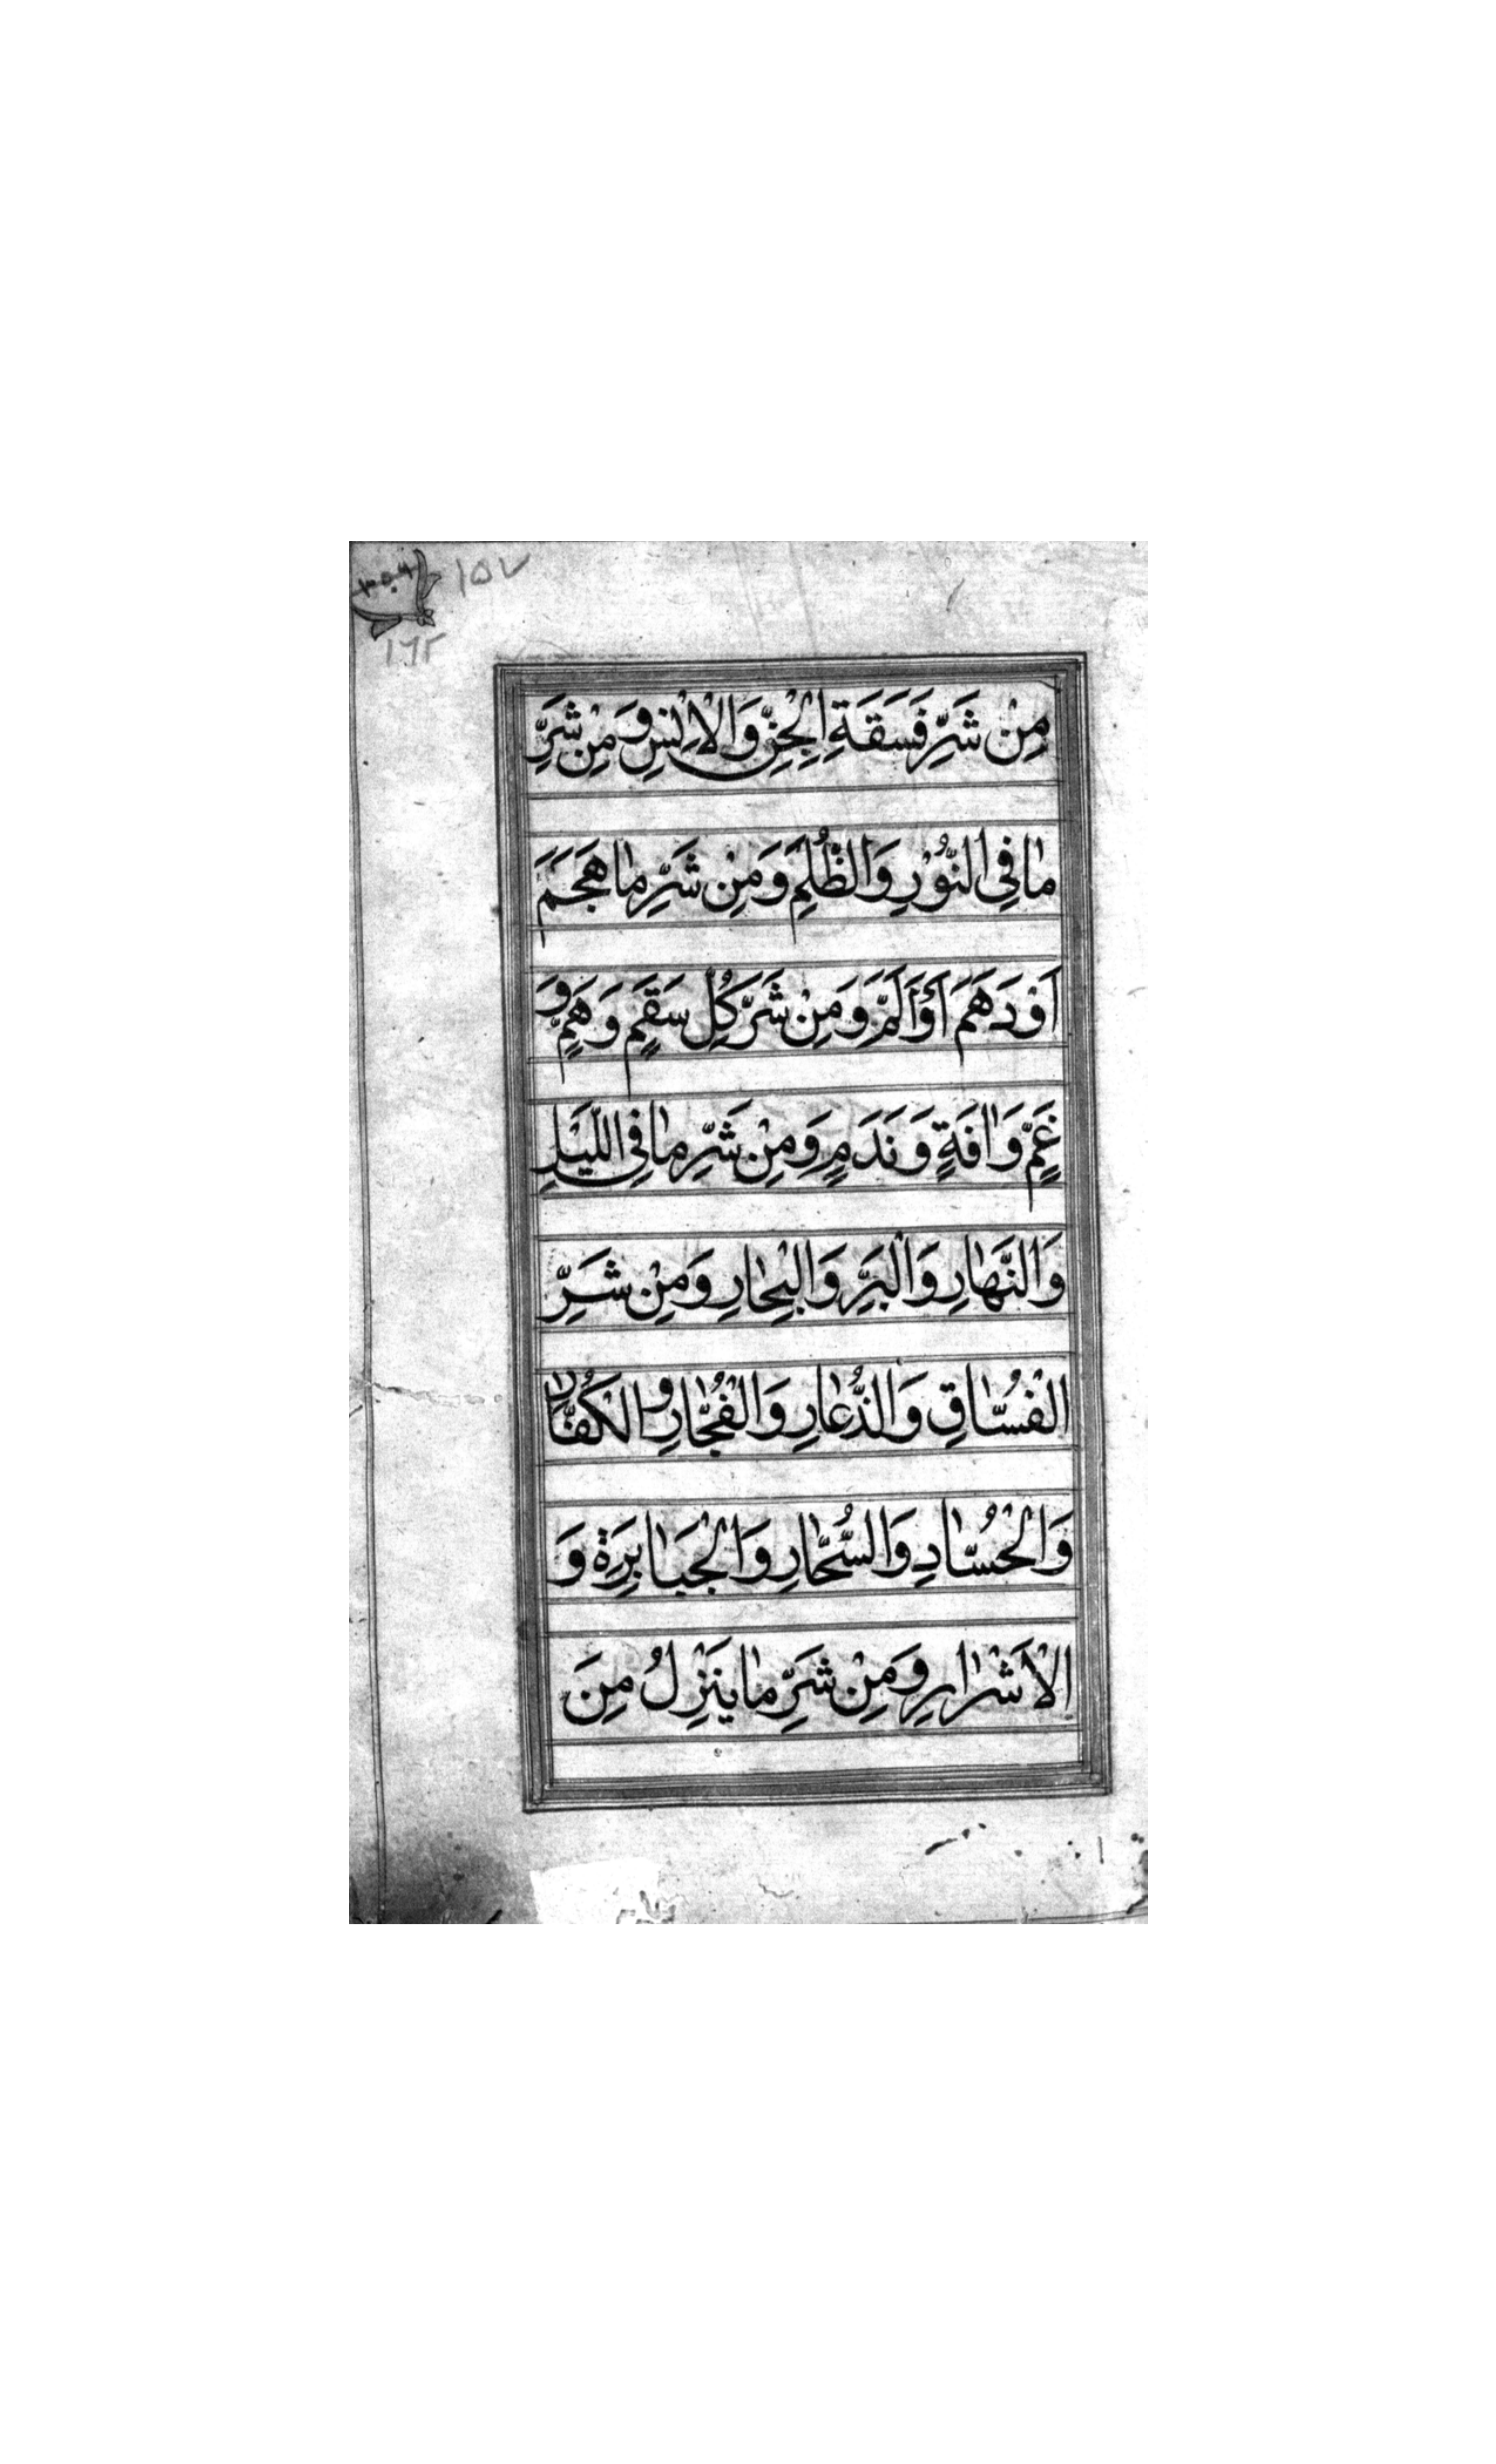 ١٥٧
٣٥٦
١٦٢
مِنْ شَرِّ فَسَقَةِ الْجِنِّ وَالْاِنْسِ وَمِنْ شَرِّ
مٰا فِي النُّوْرِ وَالظُّلَمِ وَمِنْ شَرِّ مٰا هَجَمَ
اَوْ دَهَمَ اَوْ اَلَمَّ وَمِنْ شَرِّ كُلِّ سَقَمٍ وَهَمٍّ وَ
غَمٍّ وَاٰفَةٍ وَنَدَمٍ وَمِنْ شَرِّ مٰا فِي اللَّيْلِ
وَالنَّهٰارِ وَالْبَرِّ وَالْبِحٰارِ وَمِنْ شَرِّ
الْفُسّٰاقِ وَالذُّعّٰارِ وَالْفُجّٰارِ وَالْكُفّٰارِ
وَالْحُسّٰادِ وَالسُّحّٰارِ وَالْجَبٰابِرَةِ وَ
الْاَشْرٰارِ وَمِنْ شَرِّ مٰا يَنْزِلُ مِنَ